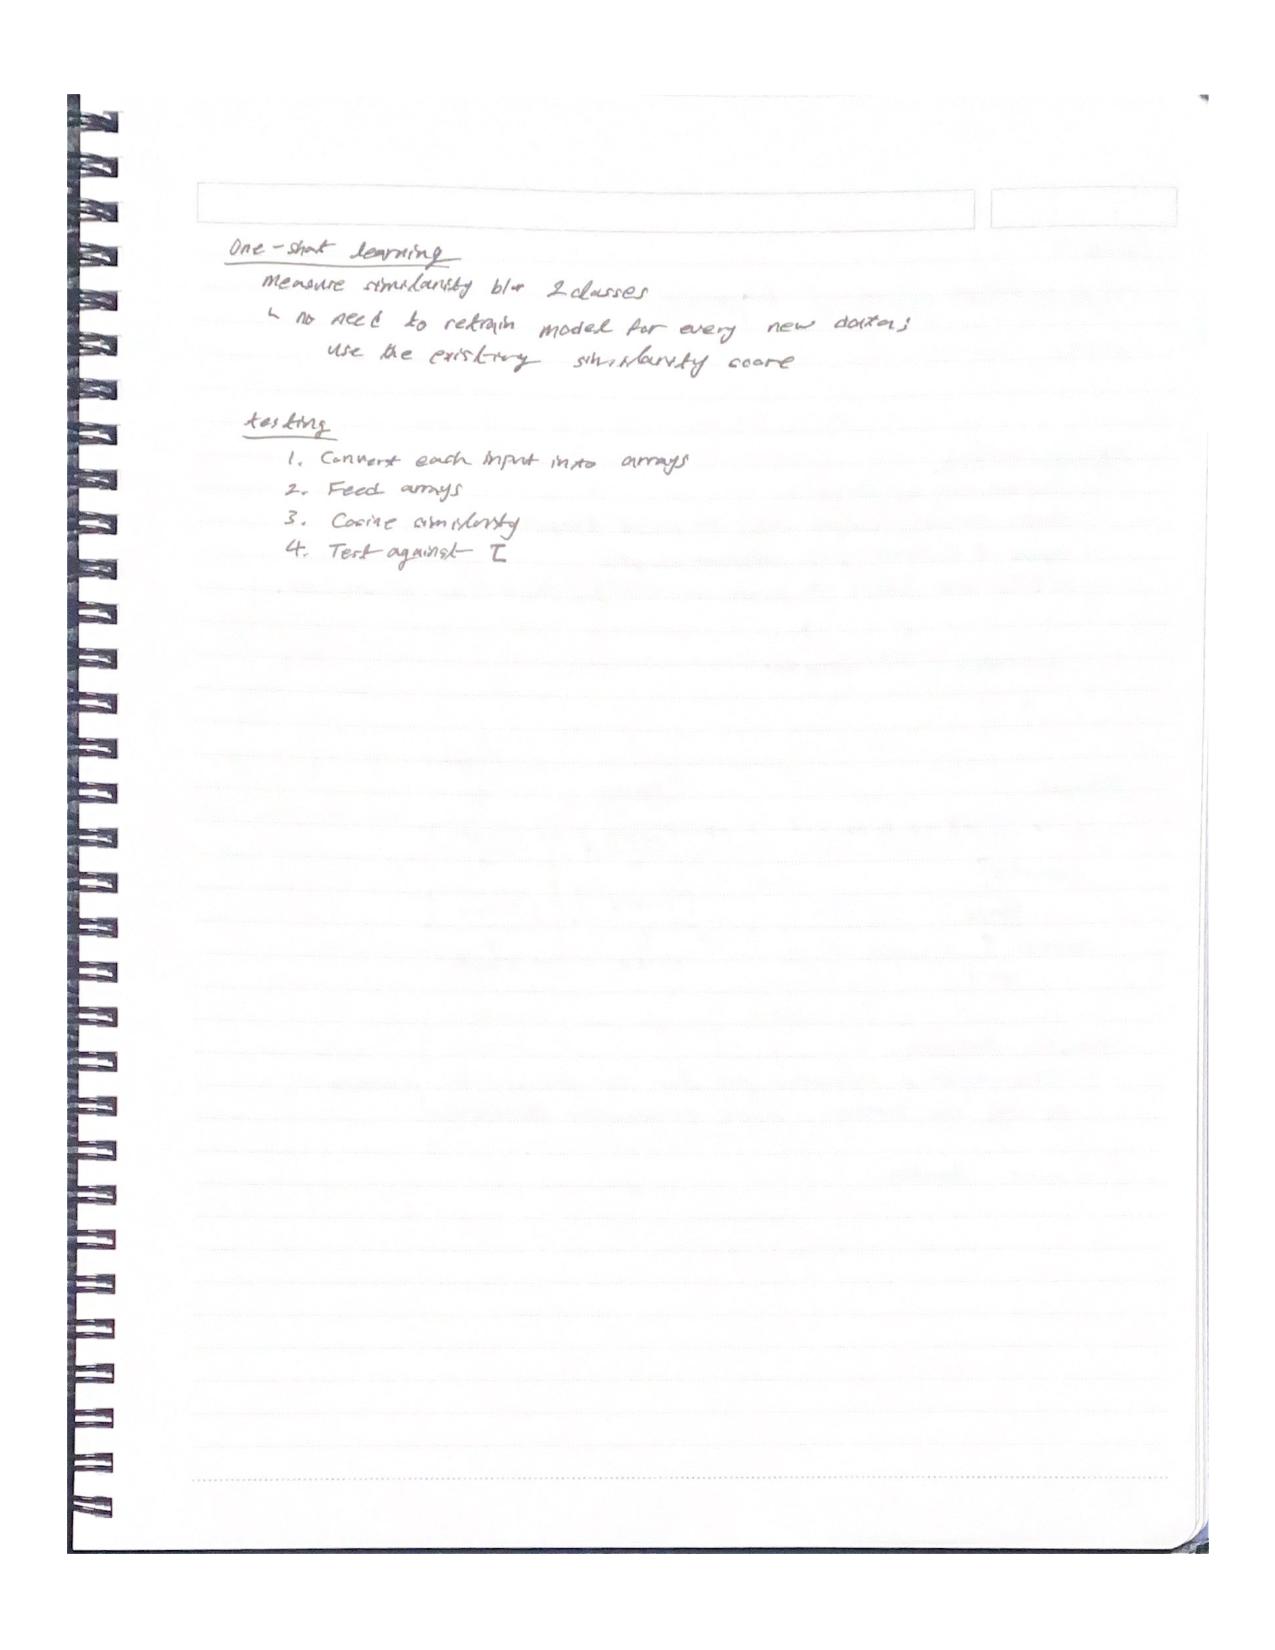 One-shot learning
measure similarity b/w 2 classes
↳ no need to retrain model for every new data;
use the existing similarity score
testing
1. Convert each input into arrays
2. Feed arrays
3. Cosine similarity
4. Test against τ